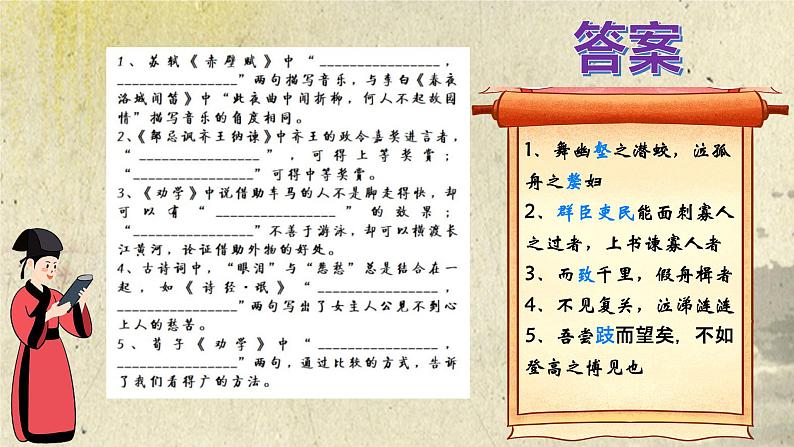 1、苏轼《赤壁赋》中“________________，
________________”两句描写音乐，与李白《春夜
洛城闻笛》中“此夜曲中闻折柳，何人不起故园
情”描写音乐的角度相同。
2、《邹忌讽齐王纳谏》中齐王的政令嘉奖进言者，
“________________”，可得上等奖赏；
“________________”可得中等奖赏。
3、《劝学》中说借助车马的人不是脚走得快，却
可以有“________________”的效果；
“________________”不善于游泳，却可以横渡长
江黄河，论证借助外物的好处。
4、古诗词中，“眼泪”与“愁愁”总是结合在一
起，如《诗经·氓》“________________，
________________”两句写出了女主人公见不到心
上人的愁苦。
5、荀子《劝学》中“________________，
________________”两句，通过比较的方式，告诉
了我们看得广的方法。
答案
1、舞幽壑之潜蛟，泣孤
舟之嫠妇
2、群臣吏民能面刺寡人
之过者，上书谏寡人者
3、而致千里，假舟楫者
4、不见复关，泣涕涟涟
5、吾尝跂而望矣，不如
登高之博见也